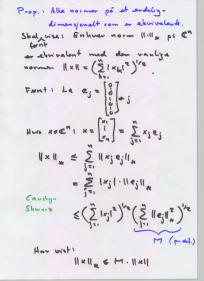 Prop.: Alle normer på et endelig-
dimensjonalt rom er ekvivalente.
Skal vise: Enhver norm ‖·‖* på ℂⁿ
er ekvivalent med den vanlige
normen ‖x‖ = (∑ₖ₌₁ⁿ |xₖ|²)^1/2
Først: La eⱼ = [0 0 1 0 0] ← j
Hvis x∈ℂⁿ: x = [x₁ x₂ ⋮ xₙ] = ∑ⱼ₌₁ⁿ xⱼ eⱼ
‖x‖* ≤ ∑ⱼ₌₁ⁿ ‖xⱼ eⱼ‖*
= ∑ⱼ₌₁ⁿ |xⱼ| · ‖eⱼ‖*
Cauchy-
Schwarz
≤ (∑ⱼ₌₁ⁿ |xⱼ|²)^1/2 (∑ⱼ₌₁ⁿ ‖eⱼ‖*²)^1/2
M
Har vist:
‖x‖* ≤ M · ‖x‖